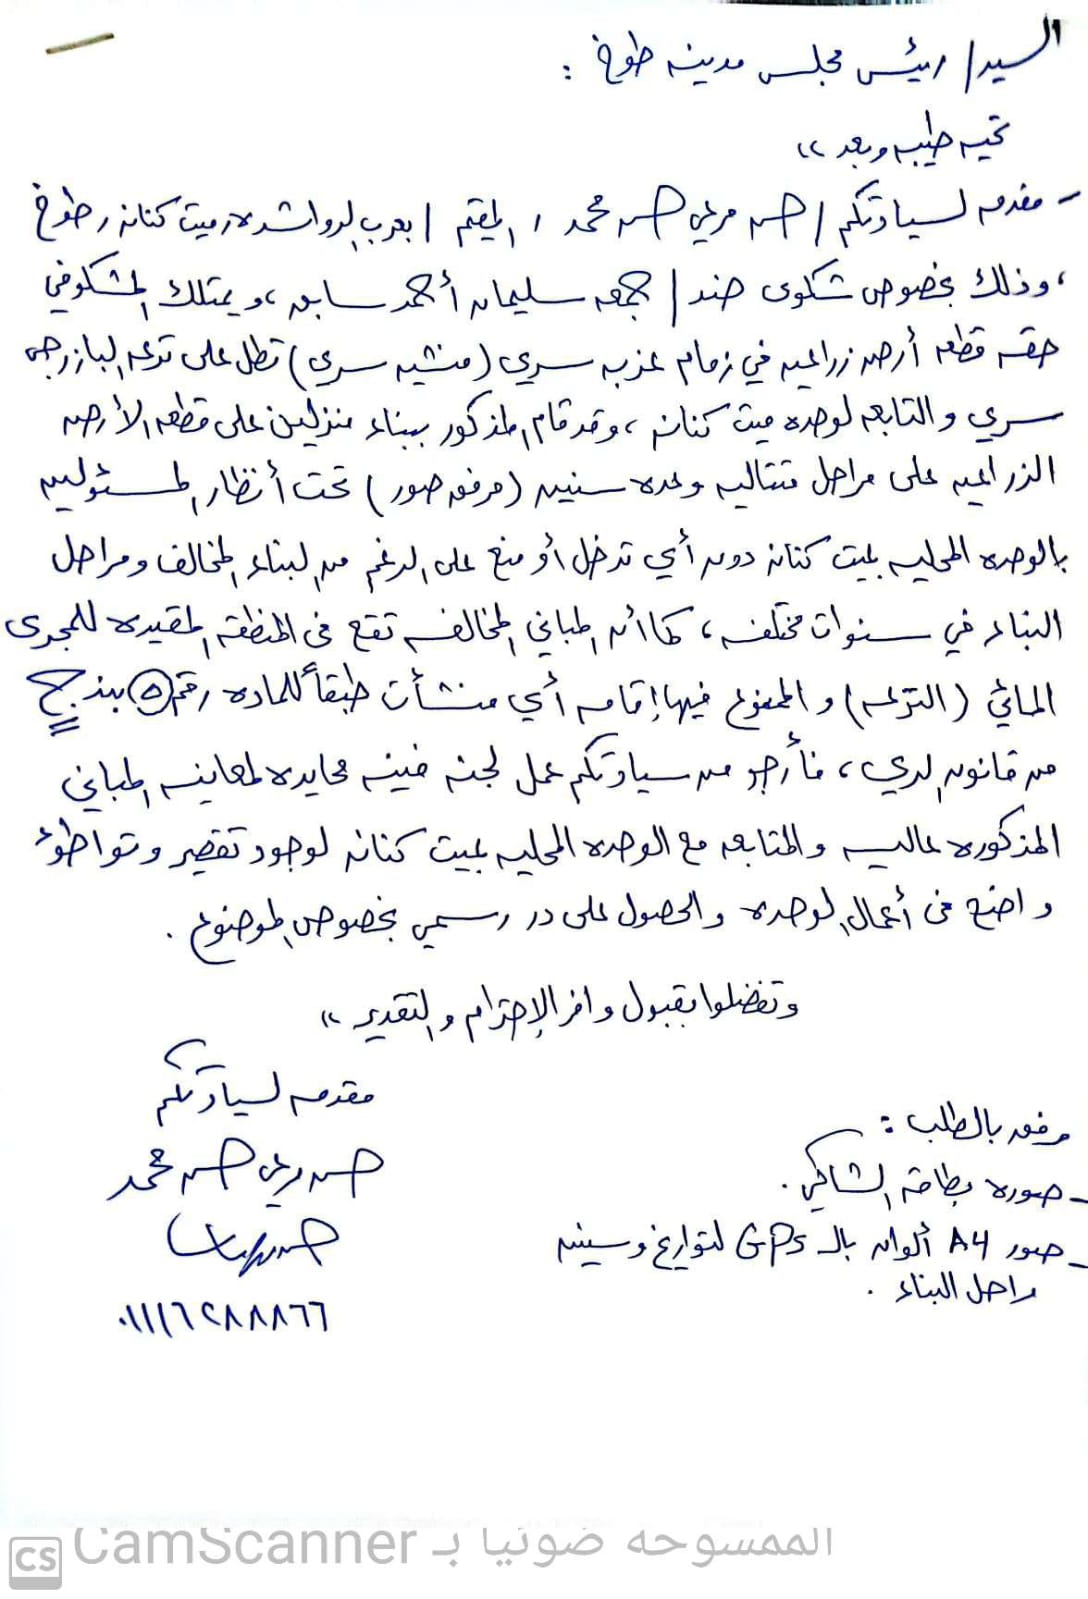 السيد/ رئيس مجلس مدينه طوخ :
تحيه طيبه وبعد ،،
- مقدمه لسيادتكم / حسن مرعي حسن محمد ، المقيم / بعرب الرواشده ميت كنانه ، طوخ
، وذلك بخصوص شكوى ضد / جمعه سليمان أحمد سابق ، ويمتلك المشكو في
حقه قطعه أرض زراعيه في زمام عزبه سري (منشيه سري) تطل على ترعه
سري والتابعه لوحده ميت كنانه ، وقد قام المذكور ببناء منزلين على قطعه الأرض
الزراعيه على مراحل متتاليه وعده سنين (مرفق صور) تحت أنظار المسئولين
بالوحده المحليه بميت كنانه دون أي تدخل أو منع على الرغم من البناء المخالف ومراحل
البناء في سنوات مختلفه ، كما أن المباني المخالفه تقع فى المنطقه المقيده للمجرى
المائي (الترعه) و الممنوع فيها إقامه أي منشأت طبقاً للماده رقم ٥ بند ج
من قانون الري ، فأرجو من سيادتكم عمل لجنه فنيه محايده لمعاينه المباني
المذكوره عاليه والمتابعه مع الوحده المحليه بميت كنانه لوجود تقصير وتواطؤ
واضح فى أعمال الوحده والحصول على رد رسمي بخصوص الموضوع .
وتفضلوا بقبول وافر الإحترام والتقدير ،،
مقدمه لسيادتكم
حسن مرعي حسن محمد
مرفق بالطلب :
- صوره بطاقه الشاكي .
- صور A4 ألوان بالـ GPS لتواريخ وسنين
مراحل البناء .
٠١١١٦٢٨٨٨٦٦
الممسوحه ضوئيا بـ CamScanner
CS